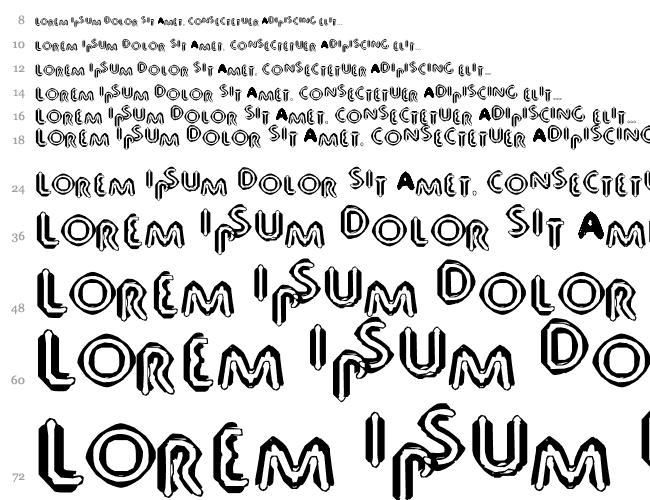 8 Lorem Ipsum Dolor Sit Amet, Consectetuer Adipiscing Elit...
10 Lorem Ipsum Dolor Sit Amet, Consectetuer Adipiscing Elit...
12 Lorem Ipsum Dolor Sit Amet, Consectetuer Adipiscing Elit...
14 Lorem Ipsum Dolor Sit Amet, Consectetuer Adipiscing Elit...
16 Lorem Ipsum Dolor Sit Amet, Consectetuer Adipiscing Elit...
18 Lorem Ipsum Dolor Sit Amet, Consectetuer Adipiscing
24 Lorem Ipsum Dolor Sit Amet, Consectetu
36 Lorem Ipsum Dolor Sit Am
48 Lorem Ipsum Dolor
60 Lorem Ipsum Do
72 Lorem Ipsum